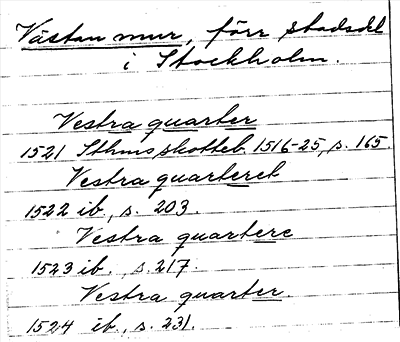 Västan mur, förr stadsdel
i Stockholm.
Vestra quarter
1521 Sthms skotteb. 1516-25, s. 165.
Vestra quarteret
1522 ib., s. 203.
Vestra quartere
1523 ib., s. 217.
Vestra quarter.
1524 ib., s. 231.